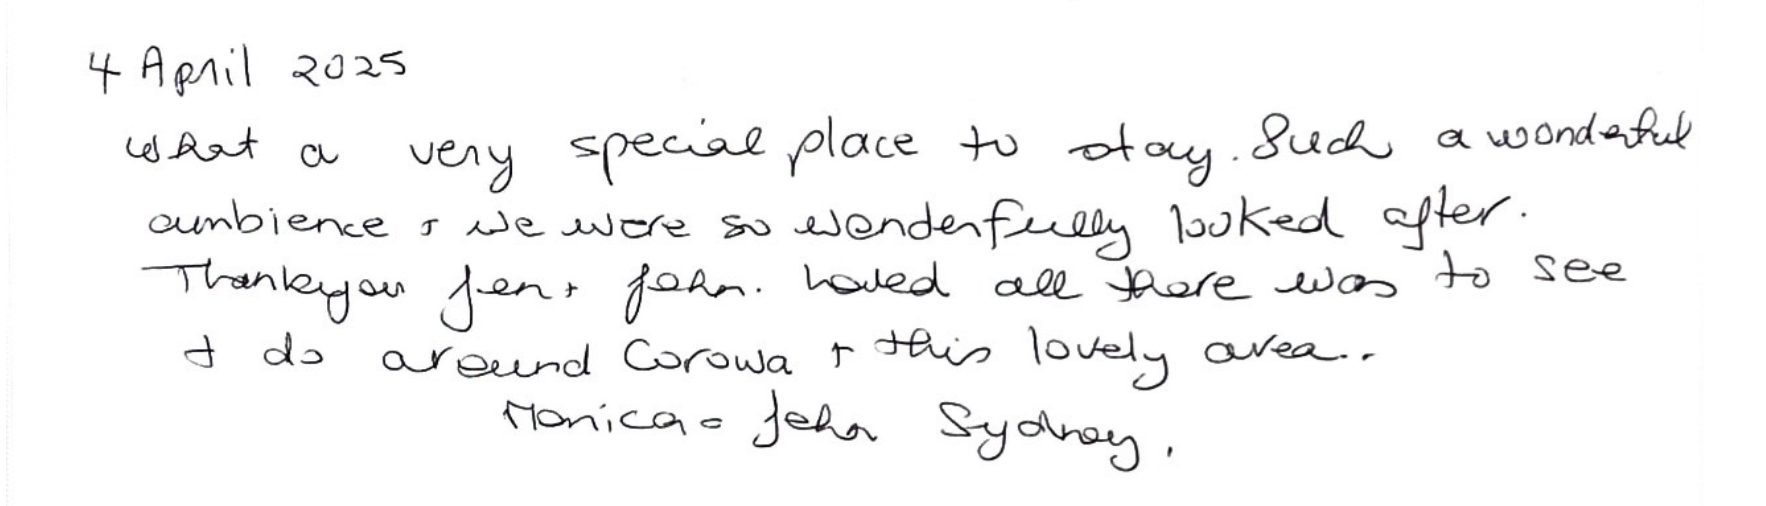 4 April 2025
What a very special place to stay. Such a wonderful
ambience + we were so wonderfully looked after.
Thankyou Jen + John. Loved all there was to see
+ do around Corowa + this lovely area..
Monica + John Sydney.